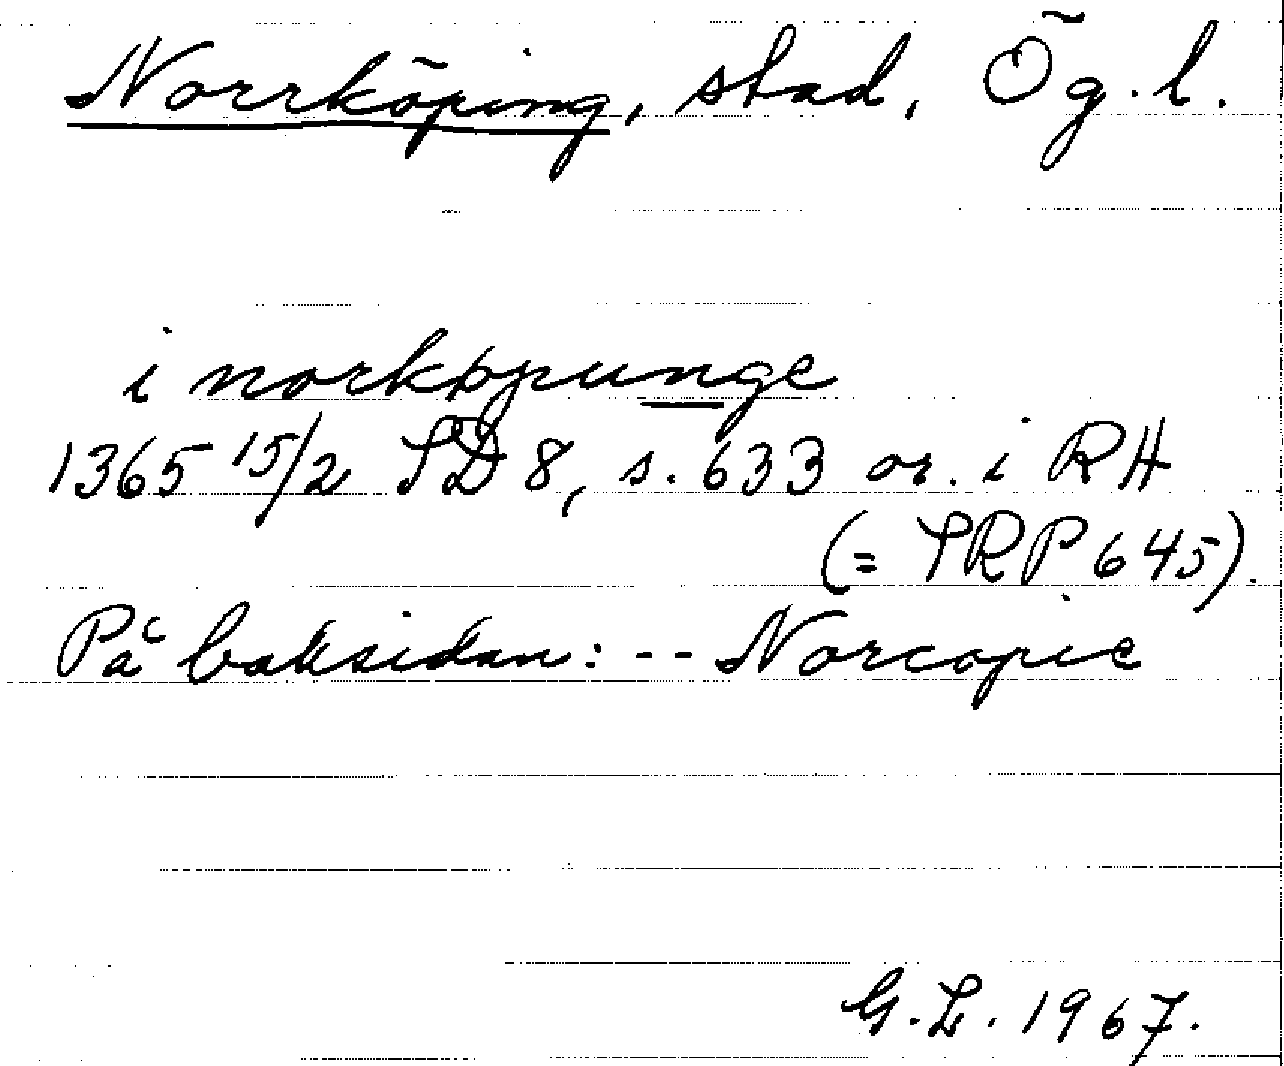 Norrköping, stad, Ög.l.
i norkøpunge
1365 15/2 SD 8, s. 633 or. i RH
(= SRP 645).
På baksidan: -- Norcopie
G.L. 1967.